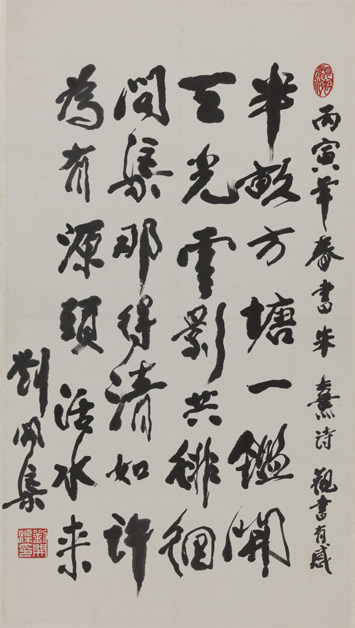 丙寅年春書朱熹詩觀書有感
半畝方塘一鑑開
天光雲影共徘徊
問渠那得清如許
為有源頭活水来
劉開渠
劉開渠印